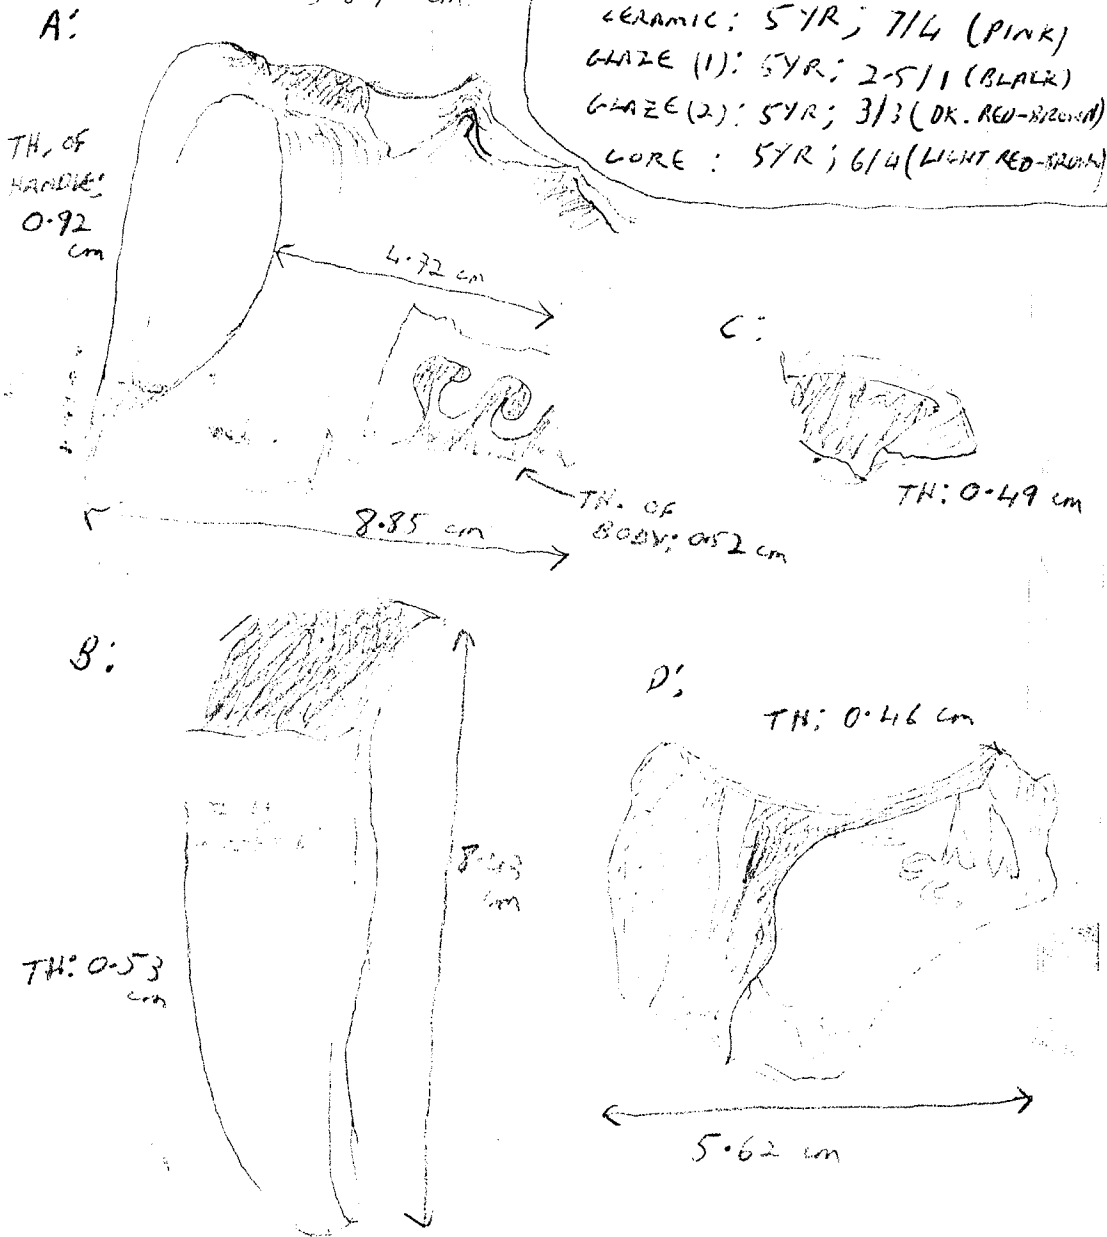 CERAMIC: 5YR; 7/4 (PINK)
GLAZE (1): 5YR; 2.5/1 (BLACK)
GLAZE (2): 5YR; 3/3 (DK. RED-BROWN)
CORE : 5YR; 6/4 (LIGHT RED-BROWN)
A:
TH. OF
HANDLE:
0.92
cm
4.72 cm
TH. OF
BODY: 0.52 cm
8.85 cm
C:
TH: 0.49 cm
B:
8.43
cm
TH: 0.53
cm
D:
TH: 0.46 cm
5.62 cm